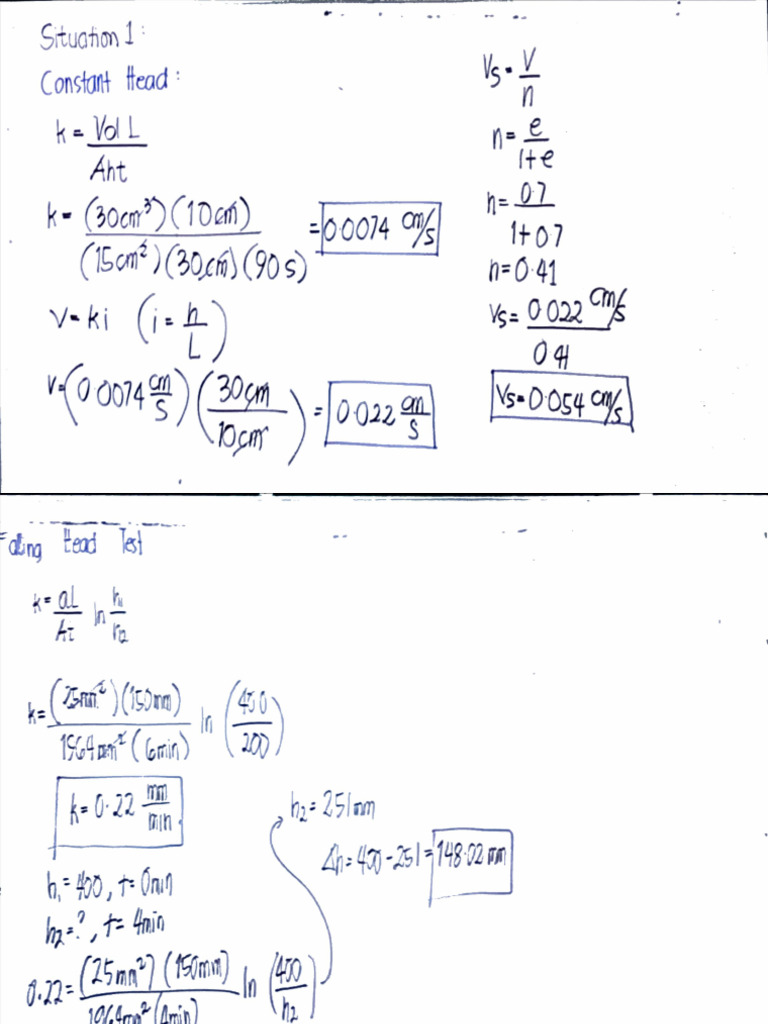 Situation 1:
Constant Head:
k = Vol L / Aht
k = (30cm³)(10cm) / (15cm²)(30cm)(90s) = 0.0074 cm/s
V = ki (i = h/L)
V = (0.0074 cm/s)(30cm/10cm) = 0.022 cm/s
Vs = V/n
n = e/1+e
n = 0.7/1+0.7
n = 0.41
Vs = 0.022 cm/s / 0.41
Vs = 0.054 cm/s
Falling Head Test
k = aL/At ln h1/h2
k = (25mm²)(150mm) / 1964mm² (6min) ln (400/200)
k = 0.22 mm/min
h₁ = 400, t = 0min
h₂ = ?, t = 4min
0.22 = (25mm²)(150mm) / 1964mm² (4min) ln (400/h₂)
h₂ = 251mm
Δh = 400 - 251 = 148.02 mm